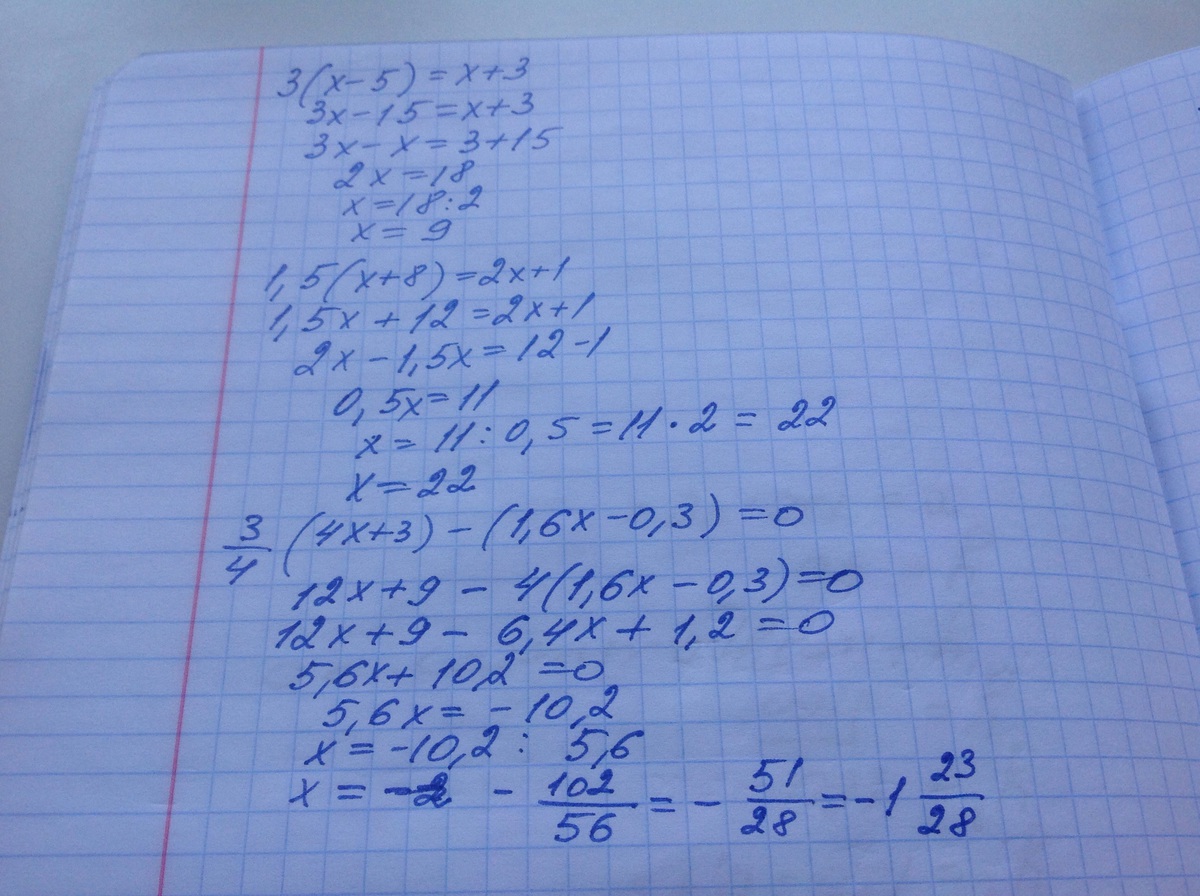 3(x-5)=x+3
3x-15=x+3
3x-x=3+15
2x=18
x=18:2
x=9
1,5(x+8)=2x+1
1,5x+12=2x+1
2x-1,5x=12-1
0,5x=11
x=11:0,5=11·2=22
x=22
3/4 (4x+3)-(1,6x-0,3)=0
12x+9-4(1,6x-0,3)=0
12x+9-6,4x+1,2=0
5,6x+10,2=0
5,6x=-10,2
x=-10,2:5,6
x= -102/56=-51/28=-1 23/28